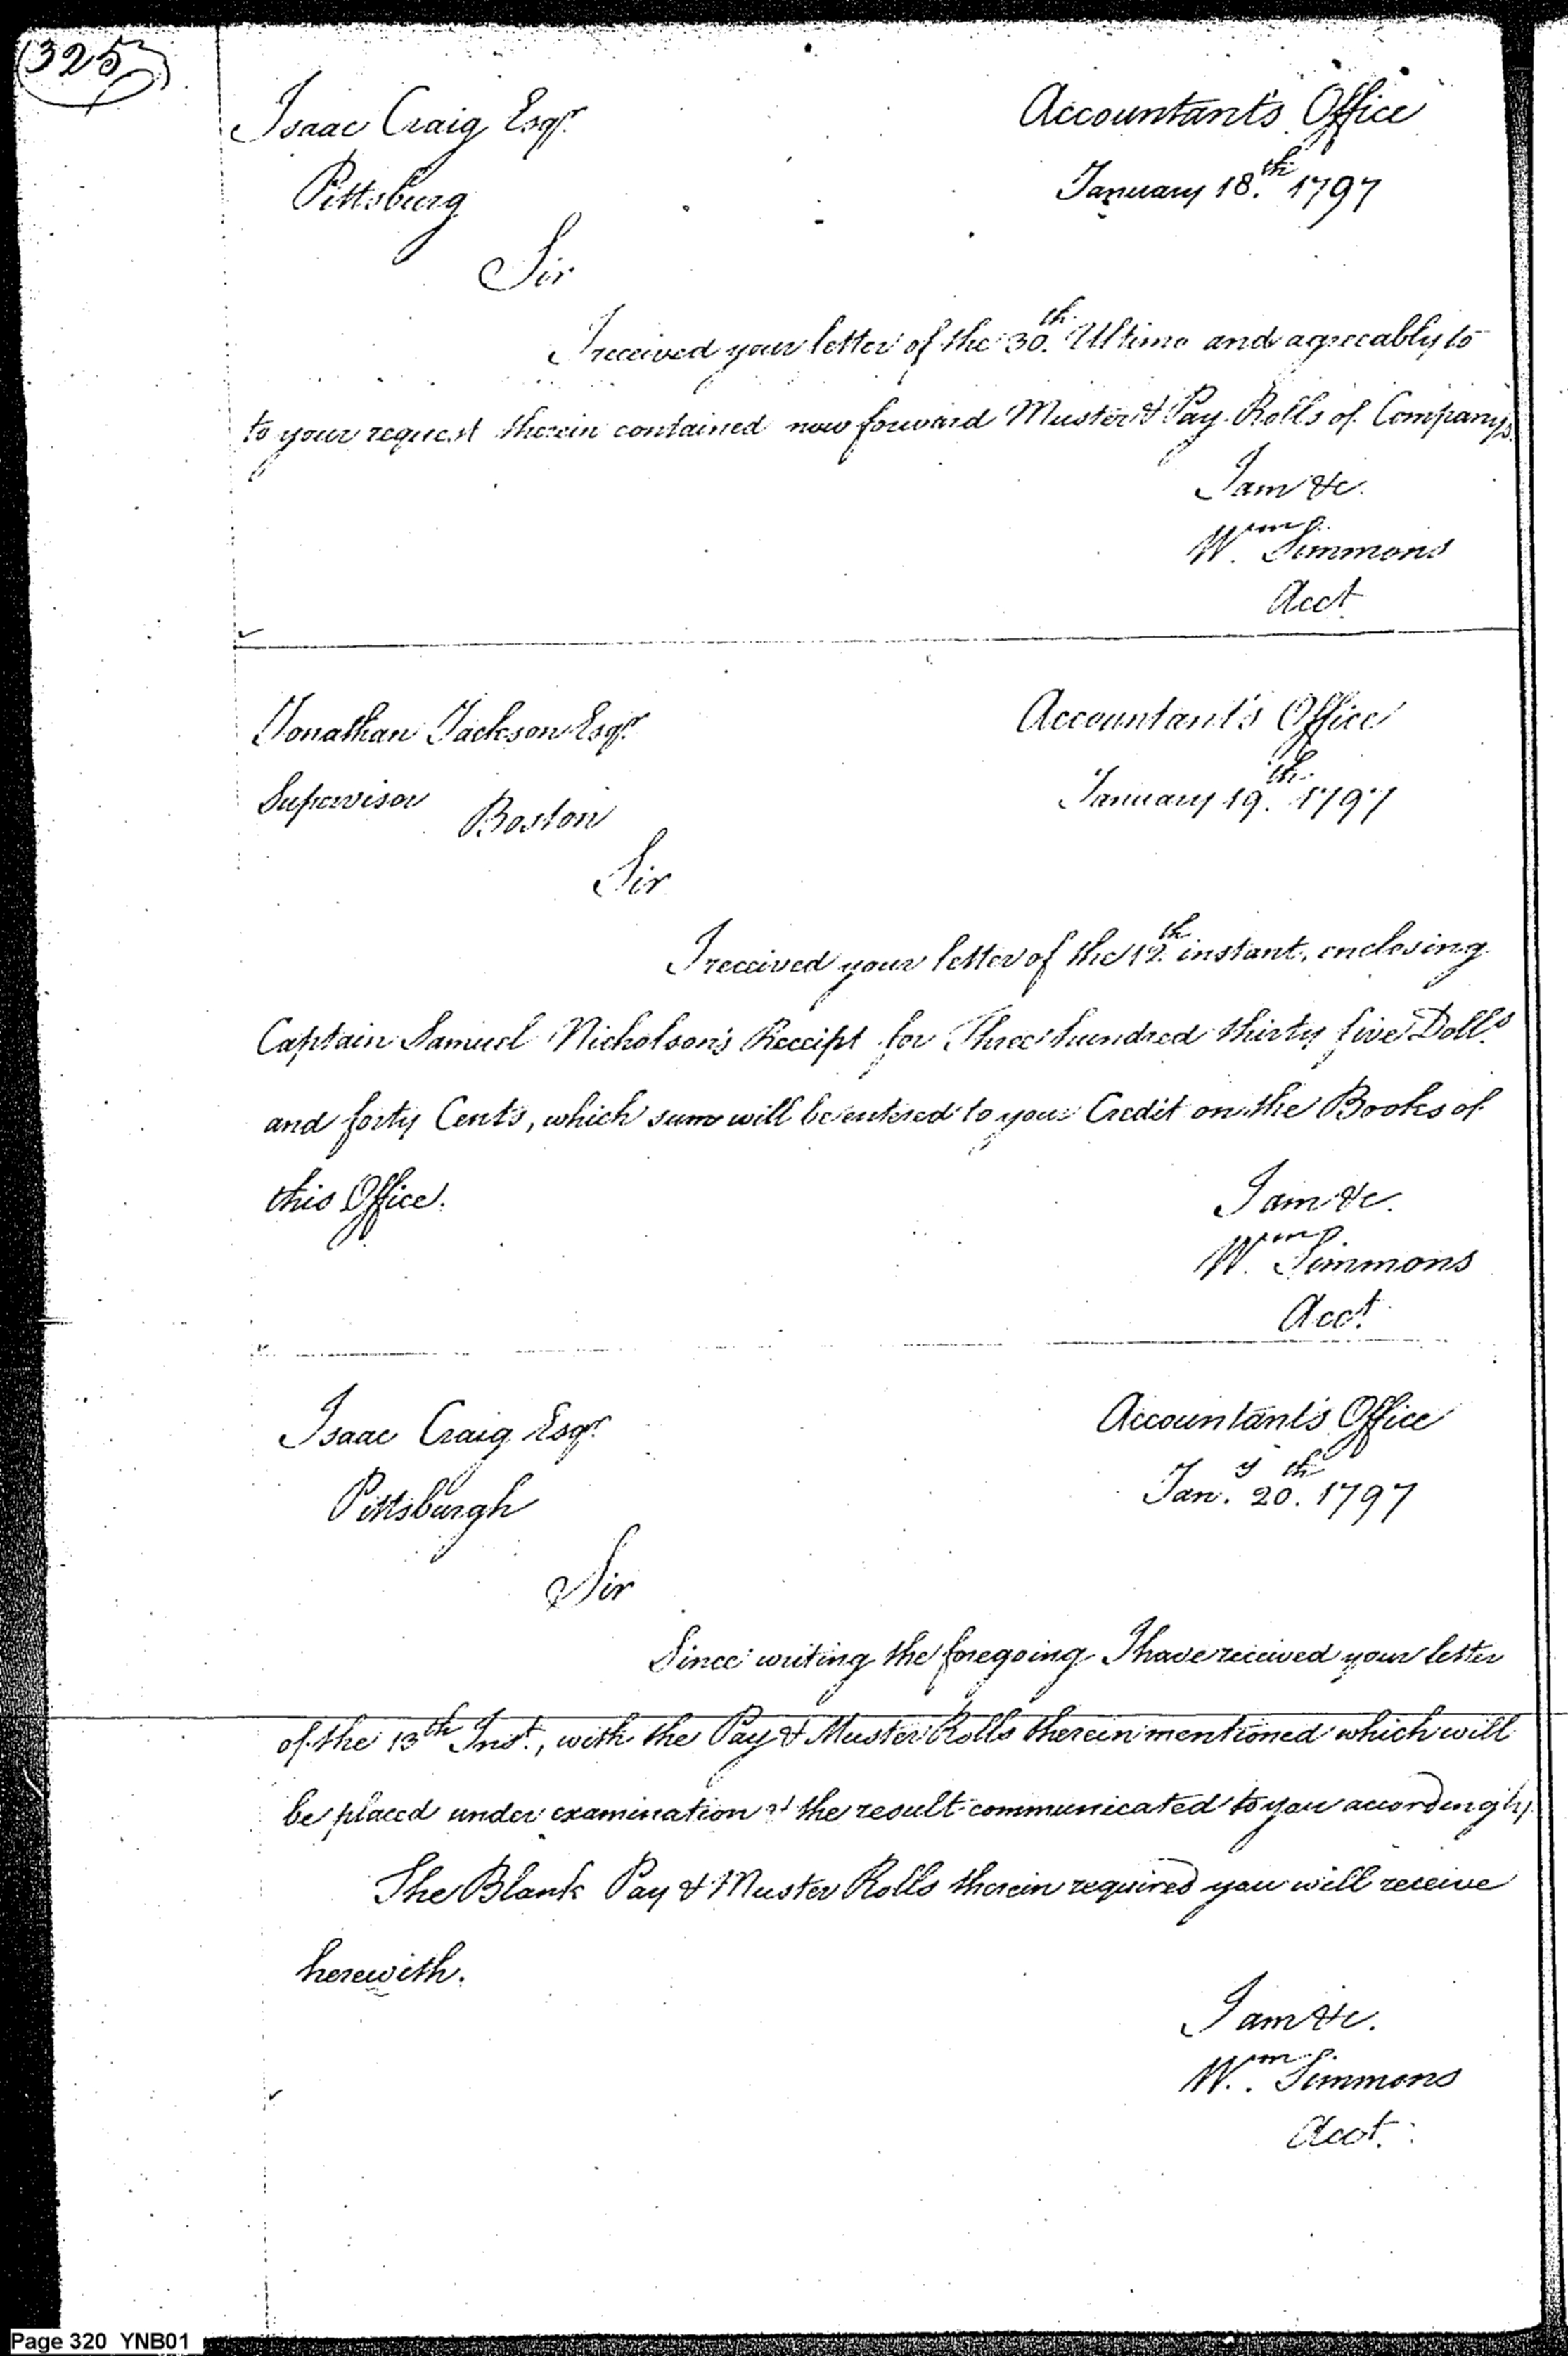 325
Isaac Craig Esqr.
Accountant's Office
Pittsburg
January 18.th 1797
Sir
I received your letter of the 30.th Ultimo and agreeably to
to your request therein contained now forward Muster & Pay Rolls of Companys.
I am &c.
Wm. Simmons
Acct
Jonathan Jackson Esqr.
Accountant's Office
Supervisor Boston
January 19.th 1797
Sir
I received your letter of the 12.th instant, enclosing
Captain Samuel Nicholson's Receipt for Three hundred thirty five Dolls.
and forty Cents, which sum will be entered to your Credit on the Books of
this Office.
I am &c.
Wm. Simmons
Acct.
Isaac Craig Esqr.
Accountant's Office
Pittsburgh
Jany. 20th. 1797
Sir
Since writing the foregoing I have received your letter
of the 13th Inst., with the Pay & Muster Rolls therein mentioned which will
be placed under examination & the result communicated to you accordingly.
The Blank Pay & Muster Rolls therein required you will receive
herewith.
I am &c.
Wm. Simmons
Acct.
Page 320 YNB01